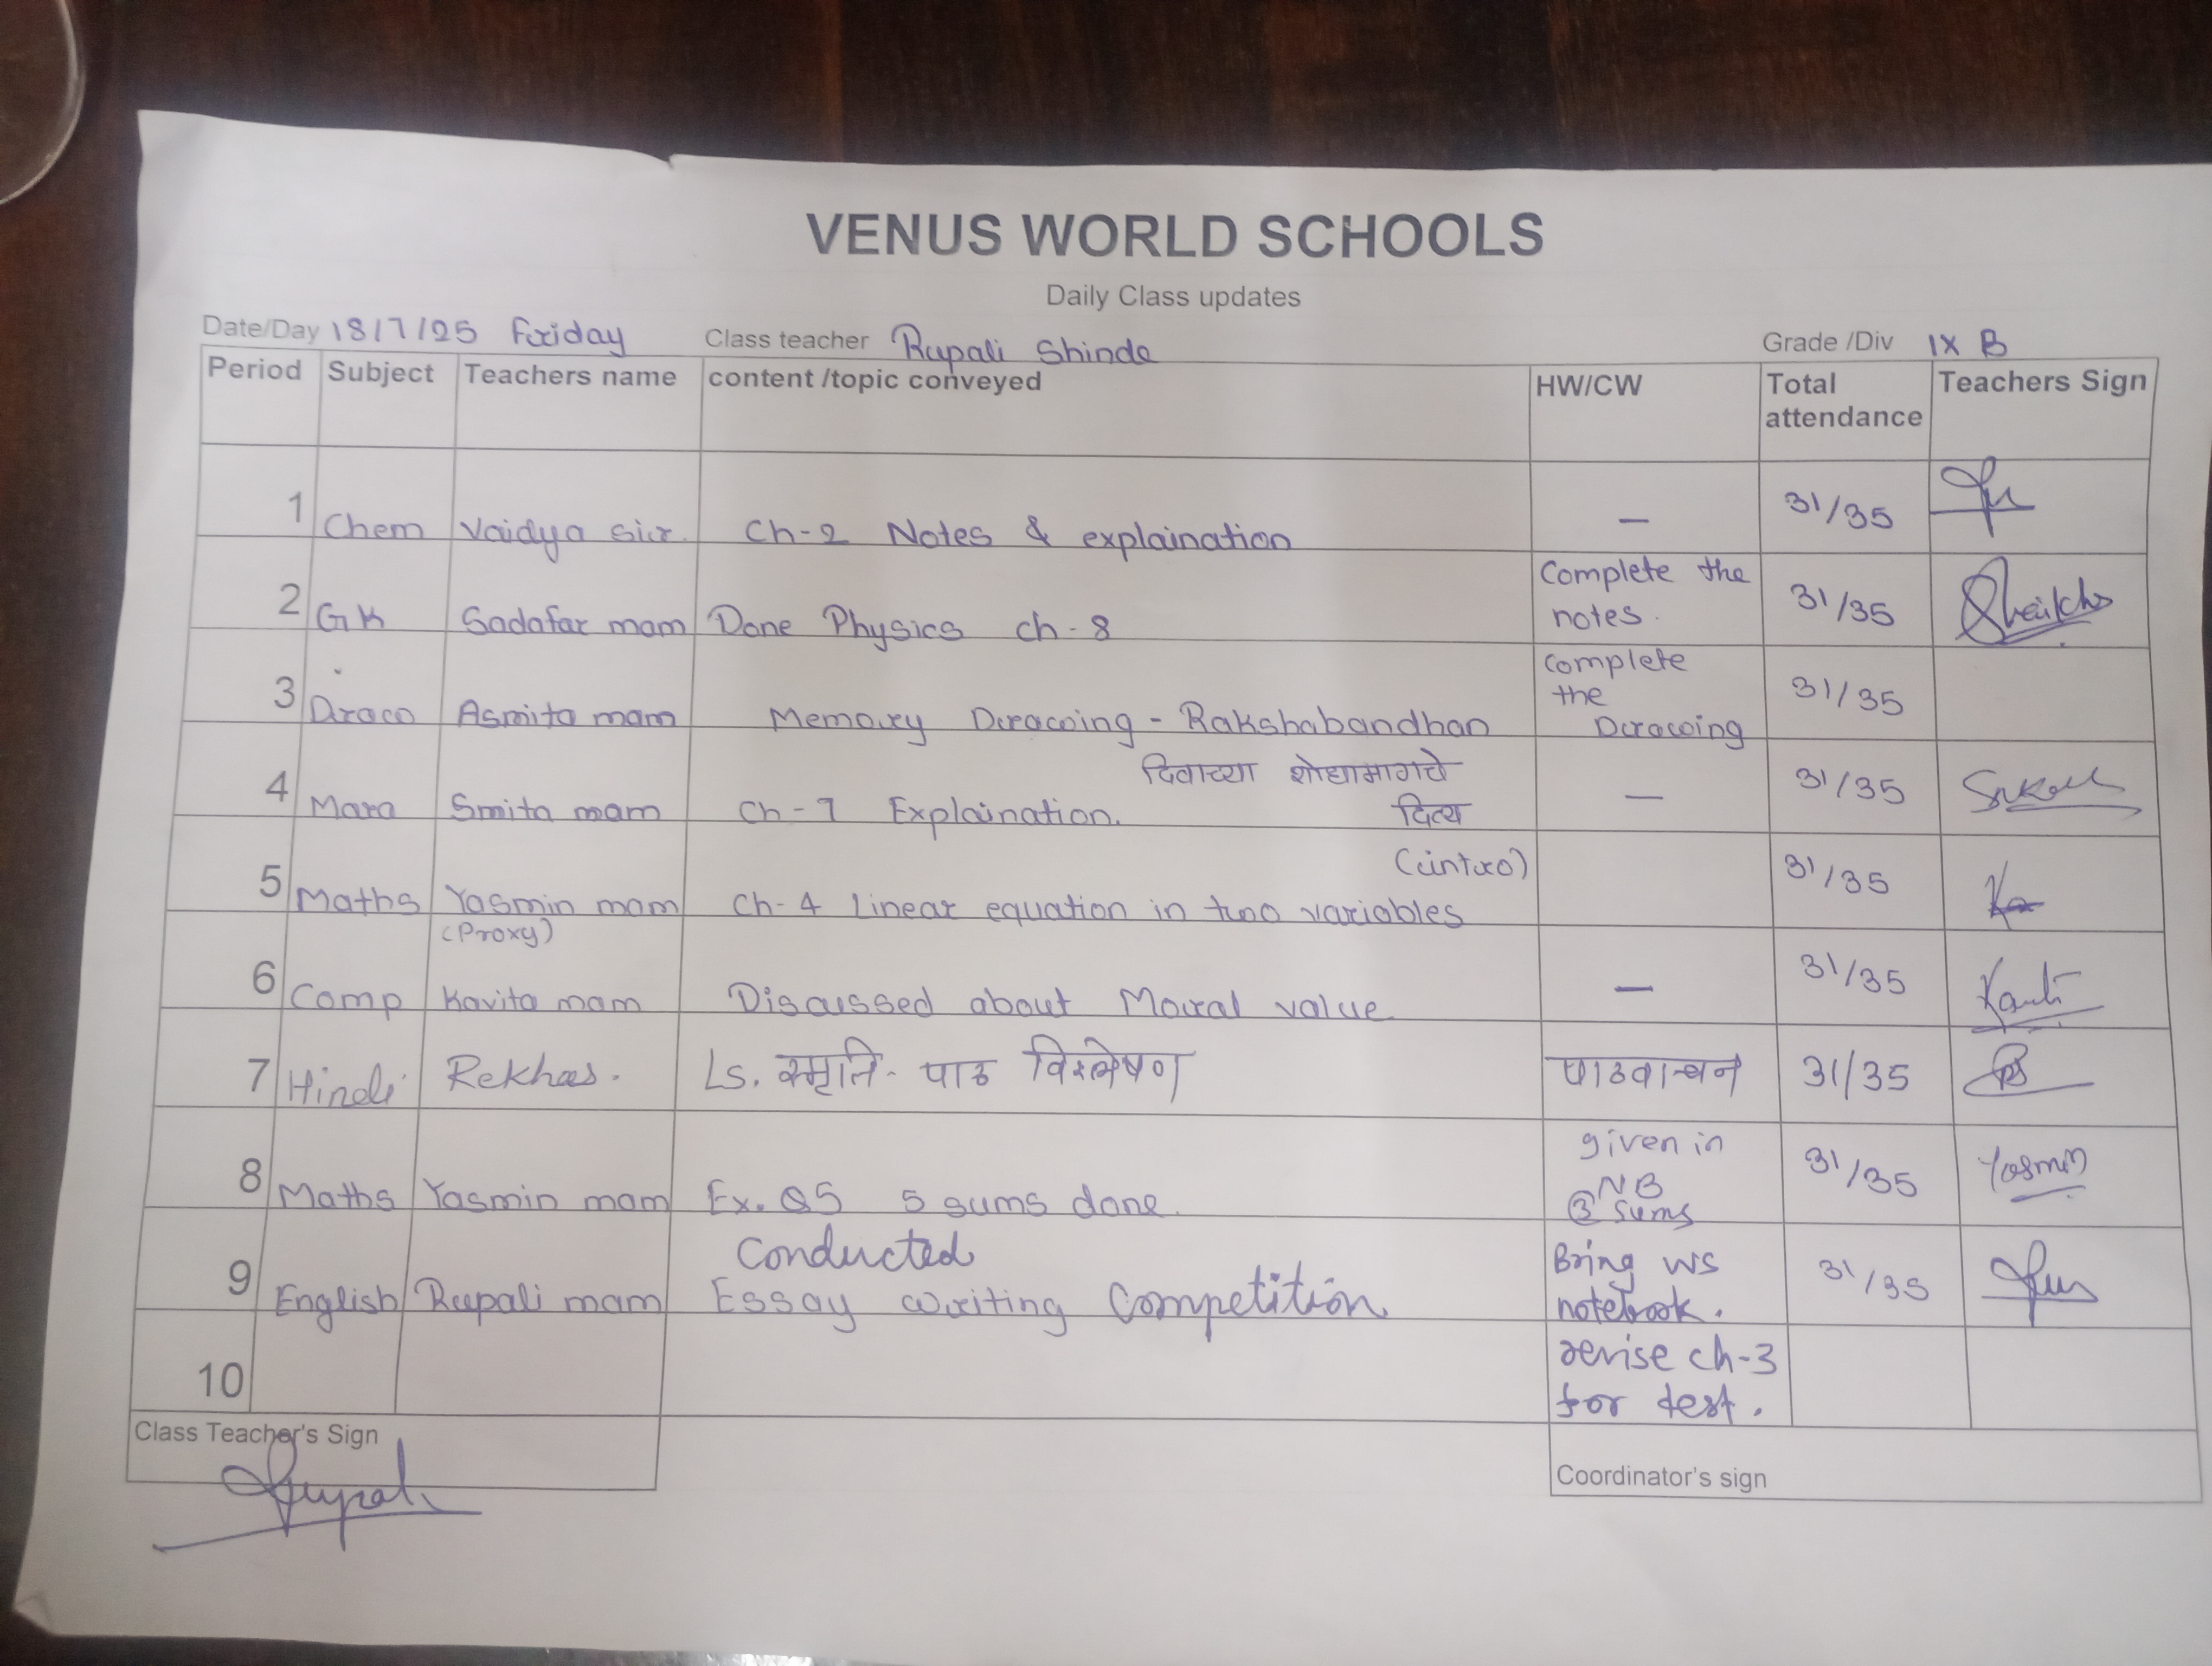 VENUS WORLD SCHOOLS
Daily Class updates
Date/Day 18/7/25 Friday Class teacher Rupali Shinde Grade /Div IX B
Period Subject Teachers name content /topic conveyed HW/CW Total attendance Teachers Sign
1 Chem Vaidya sir. Ch-2 Notes & explaination — 31/35
2 GK Sadafar mam Done Physics ch-8 Complete the notes. 31/35 Sheikh
3 Draw Asmita mam Memory Drawing - Rakshabandhan Complete the Drawing 31/35
4 Mara Smita mam Ch-7 Explaination. दिवाच्या शोधामागचे दिव्य — 31/35
5 Maths Yasmin mam Ch-4 Linear equation in two variables (intro) 31/35
(Proxy)
6 Comp Kavita mam Discussed about Moral value — 31/35
7 Hindi Rekha Ls. स्मृति - पाठ विश्लेषण पाठवाचन 31/35
8 Maths Yasmin mam Ex. Q5 5 sums done. given in NB 3 sums 31/35 Yasmin
9 English Rupali mam Conducted Essay writing Competition Bring WS notebook. 31/35
10 revise ch-3 for test.
Class Teacher's Sign
Coordinator's sign